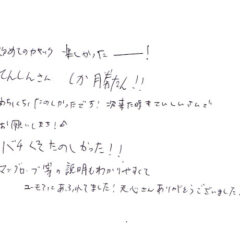 初めてのカヤック 楽しかったーー!
てんしんさん しか 勝たん!!
めちゃくちゃ たのしかったです! 次来た時もてんしんさんで
お願いします!
バチくそ たのしかった!!
マングローブ等の説明もわかりやすくて
ユーモアにあふれてました! 天心さんありがとうございました!